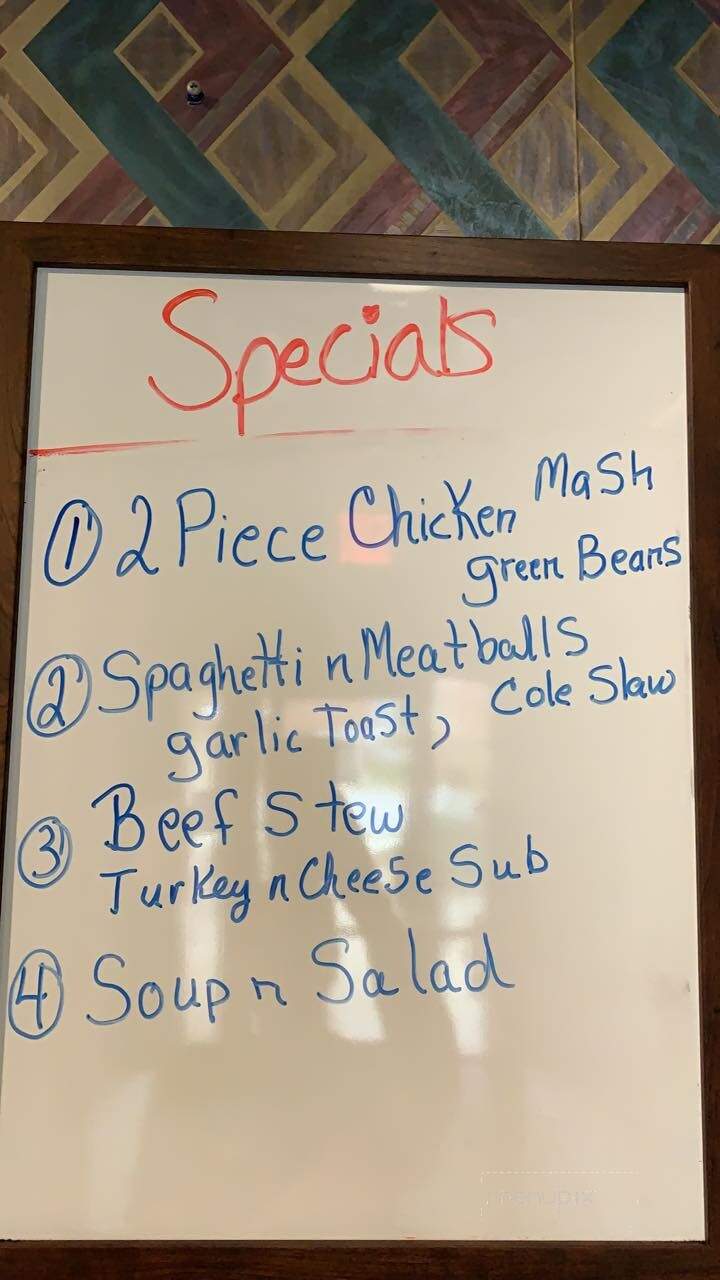 Specials
① 2 Piece Chicken Mash
green Beans
② Spaghetti n Meatballs
garlic Toast, Cole Slaw
③ Beef Stew
Turkey n Cheese Sub
④ Soup n Salad
menupix